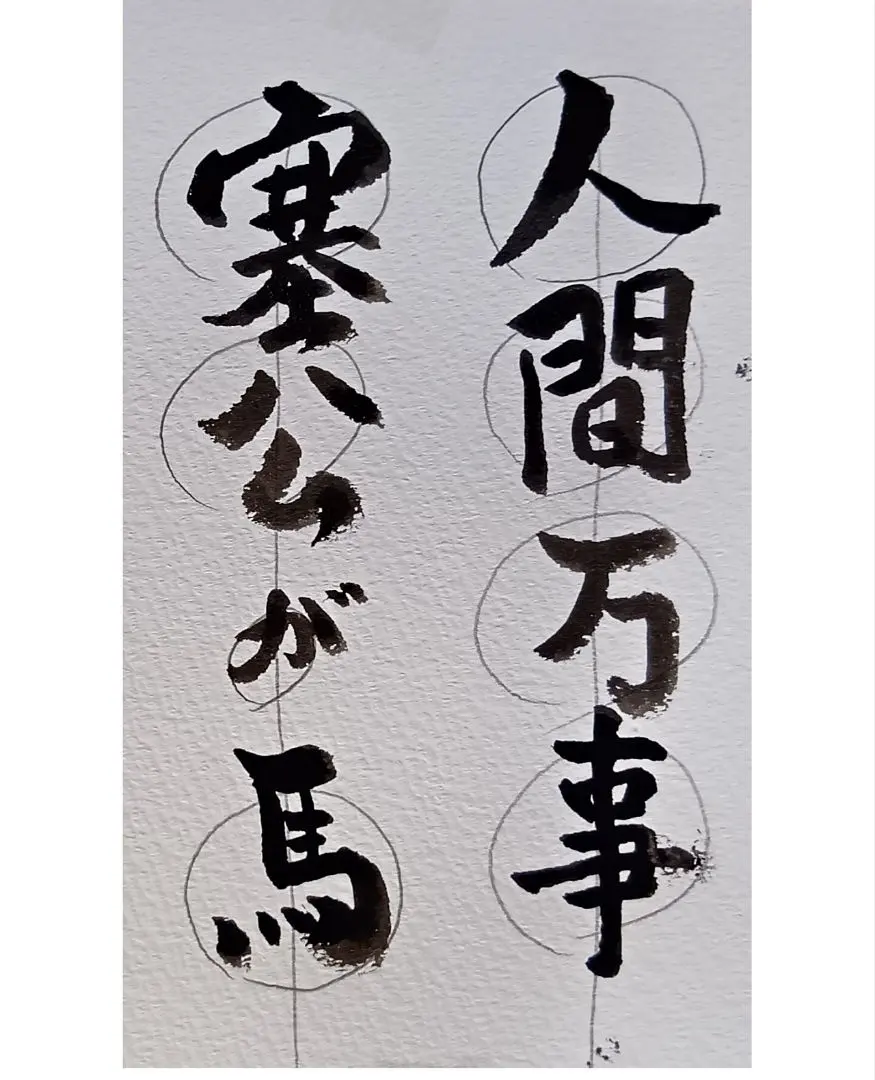 人間万事
塞公が馬